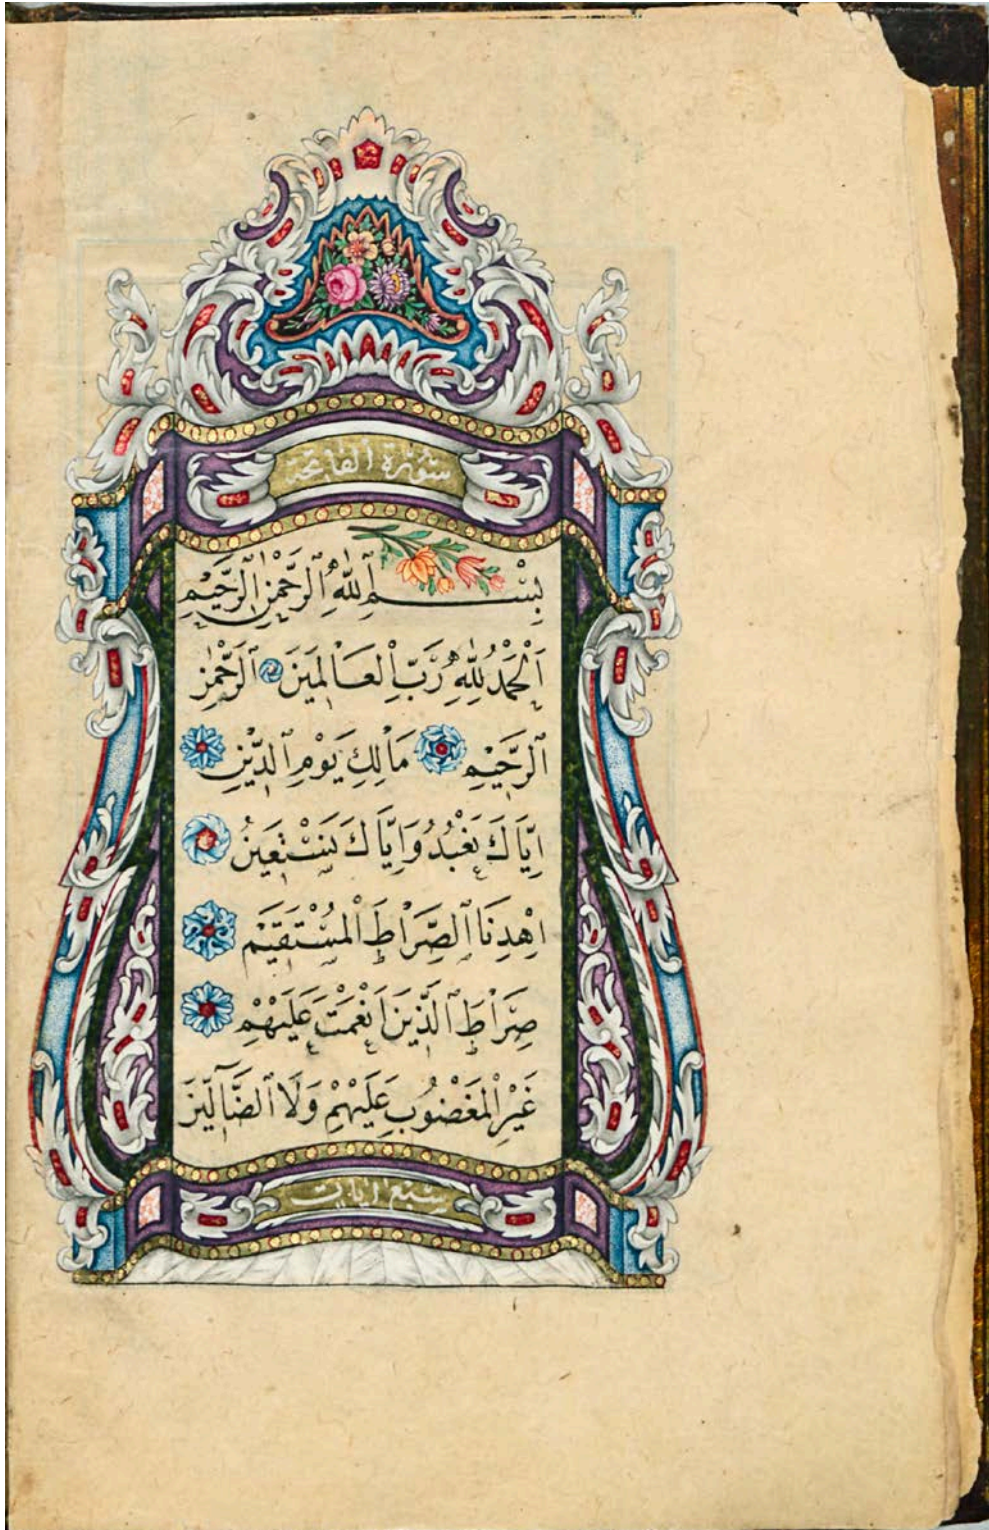 سُورَة الفاتحة
بِسْمِ ٱللّٰهِ ٱلرَّحْمٰنِ ٱلرَّحِيْمِ
اَلْحَمْدُ لِلّٰهِ رَبِّ الْعَالَمِيَنَ ٱلرَّحْمٰنِ
ٱلرَّحِيْمِ مَالِكِ يَوْمِ ٱلدِّيْنِ
اِيَّاكَ نَعْبُدُ وَاِيَّاكَ نَسْتَعِينُ
اِهْدِنَا ٱلصِّرَاطَ الْمُسْتَقِيَم
صِرَاطَ ٱلَّذِينَ اَنْعَمْتَ عَلَيْهِمْ
غَيْرِ الْمَغْضُوبِ عَلَيْهِمْ وَلَا ٱلضَّآلِّينَ
سَبْع اٰيَات